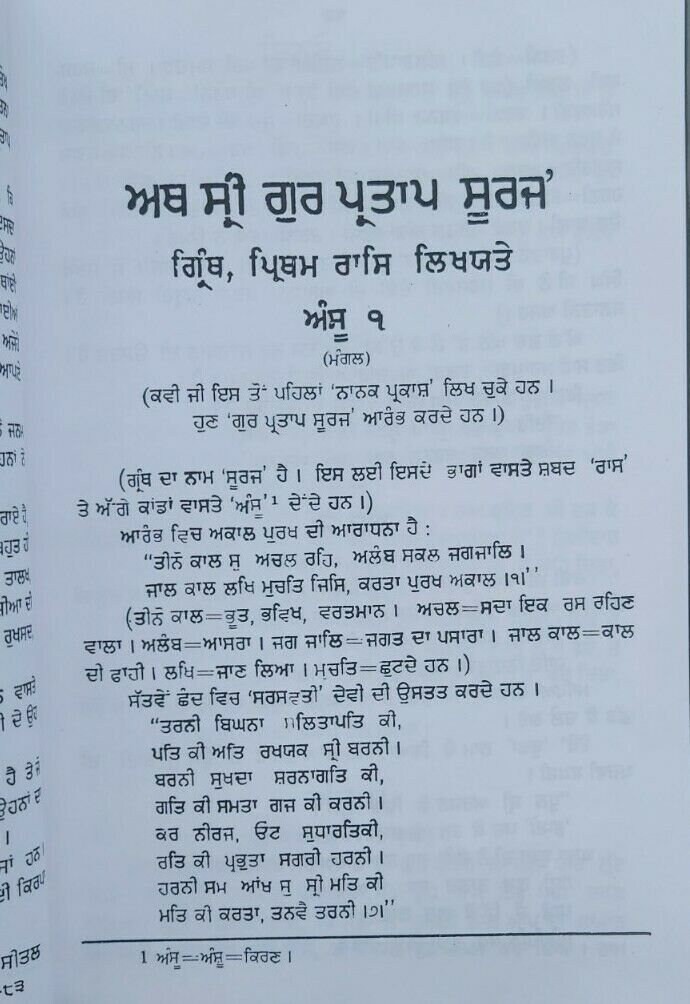 ਅਥ ਸ੍ਰੀ ਗੁਰ ਪ੍ਰਤਾਪ ਸੂਰਜ'
ਗ੍ਰਿੰਥ, ਪ੍ਰਿਥਮ ਰਾਸਿ ਲਿਖਯਤੇ
ਅੰਸੂ ੧
(ਮੰਗਲ)
(ਕਵੀ ਜੀ ਇਸ ਤੋਂ ਪਹਿਲਾਂ 'ਨਾਨਕ ਪ੍ਰਕਾਸ਼' ਲਿਖ ਚੁਕੇ ਹਨ ।
ਹੁਣ 'ਗੁਰ ਪ੍ਰਤਾਪ ਸੂਰਜ' ਆਰੰਭ ਕਰਦੇ ਹਨ ।)
(ਗ੍ਰੰਥ ਦਾ ਨਾਮ 'ਸੂਰਜ' ਹੈ । ਇਸ ਲਈ ਇਸਦੇ ਭਾਗਾਂ ਵਾਸਤੇ ਸ਼ਬਦ 'ਰਾਸ'
ਤੇ ਅੱਗੇ ਕਾਂਡਾਂ ਵਾਸਤੇ 'ਅੰਸੂ'1 ਦੇਂਦੇ ਹਨ ।)
ਆਰੰਭ ਵਿਚ ਅਕਾਲ ਪੁਰਖ ਦੀ ਆਰਾਧਨਾ ਹੈ :
"ਤੀਨੋ ਕਾਲ ਸੁ ਅਚਲ ਰਹਿ, ਅਲੰਬ ਸਕਲ ਜਗਜਾਲਿ ।
ਜਾਲ ਕਾਲ ਲਖਿ ਮੁਚਤਿ ਜਿਸਿ, ਕਰਤਾ ਪੁਰਖ ਅਕਾਲ ।੧।"
(ਤੀਨੋ ਕਾਲ=ਭੂਤ, ਭਵਿਖ, ਵਰਤਮਾਨ । ਅਚਲ=ਸਦਾ ਇਕ ਰਸ ਰਹਿਣ
ਵਾਲਾ । ਅਲੰਬ=ਆਸਰਾ । ਜਗ ਜਾਲਿ=ਜਗਤ ਦਾ ਪਸਾਰਾ । ਜਾਲ ਕਾਲ=ਕਾਲ
ਦੀ ਫਾਹੀ । ਲਖਿ=ਜਾਣ ਲਿਆ । ਮੁਚਤਿ=ਛੁਟਦੇ ਹਨ ।)
ਸੱਤਵੇਂ ਛੰਦ ਵਿਚ 'ਸਰਸਵਤੀ' ਦੇਵੀ ਦੀ ਉਸਤਤ ਕਰਦੇ ਹਨ ।
"ਤਰਨੀ ਬਿਘਨਾ ਕੀ,
ਪਤਿ ਕੀ ਅਤਿ ਰਖਯਕ ਸ੍ਰੀ ਬਰਨੀ ।
ਬਰਨੀ ਸੁਖਦਾ ਸ਼ਰਨਾਗਤਿ ਕੀ,
ਗਤਿ ਕੀ ਸਮਤਾ ਗਜ ਕੀ ਕਰਨੀ ।
ਕਰ ਨੀਰਜ, ਓਟ ਸੁਧਾਰਤਿਕੀ,
ਰਤਿ ਕੀ ਪ੍ਰਭੁਤਾ ਸਗਰੀ ਹਰਨੀ ।
ਹਰਨੀ ਸਮ ਆਂਖ ਸੁ ਸ੍ਰੀ ਮਤਿ ਕੀ
ਮਤਿ ਕੀ ਕਰਤਾ, ਤਨਵੈ ਤਰਨੀ ।੭।"
1 ਅੰਸੂ=ਅੰਸ਼ੂ=ਕਿਰਣ ।